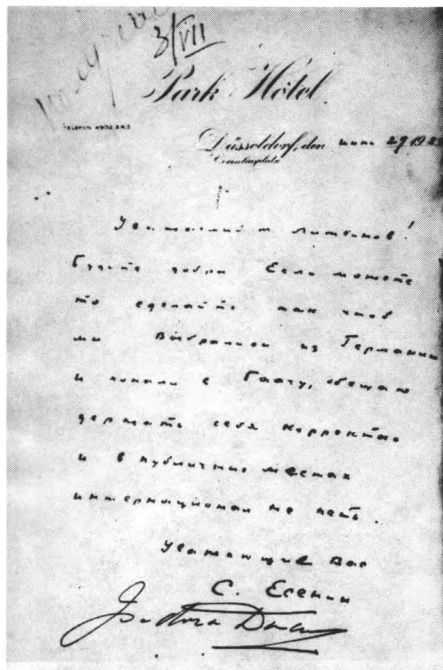 3/VII
Park Hôtel
Düsseldorf, den июнь 29 1922
Corneliusplatz
Уважаемый т. Литвинов!
Будьте добры Если можете
то сделайте так чтоб
мы Выбрались из Германии
и попали в Гаагу, обещаю
держать себя корректно
и в публичных местах
интернационал не петь.
Уважающие Вас
С. Есенин
Isadora Duncan